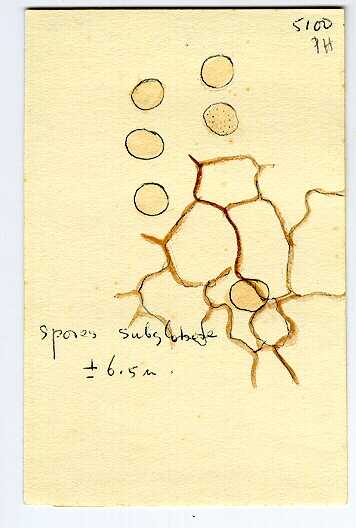 5100
PH
spores subglobose
± 6.5 u.